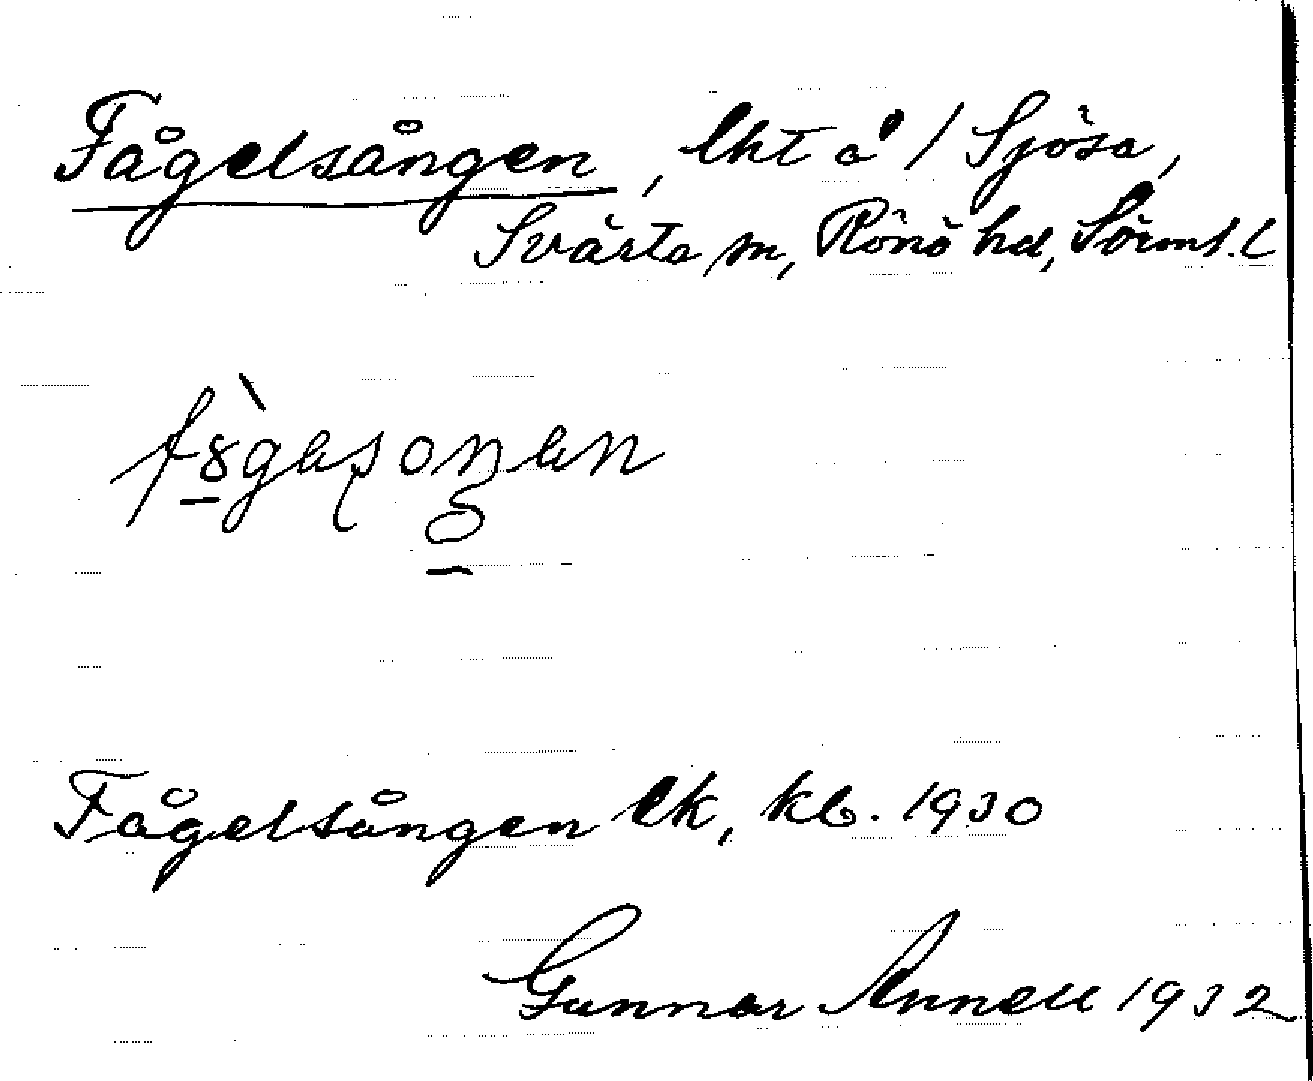 Fågelsången, lht å / Sjösa,
Svärta sn, Rönö hd, Sörml. l
Fågelsången ek, kb. 1930
Gunnar Annell 1932